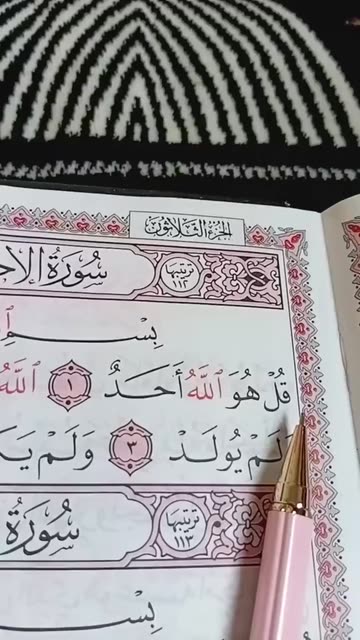 الجزء الثلاثون
سُورَةُ الإخ
ترتيبها ١١٢
بِسْمِ
قُلْ هُوَ ٱللَّهُ أَحَدٌ ١ ٱللَّهُ
لَمْ يُولَدْ ٣ وَلَمْ يَكُ
سُورَةُ
ترتيبها ١١٣
بِسْـ